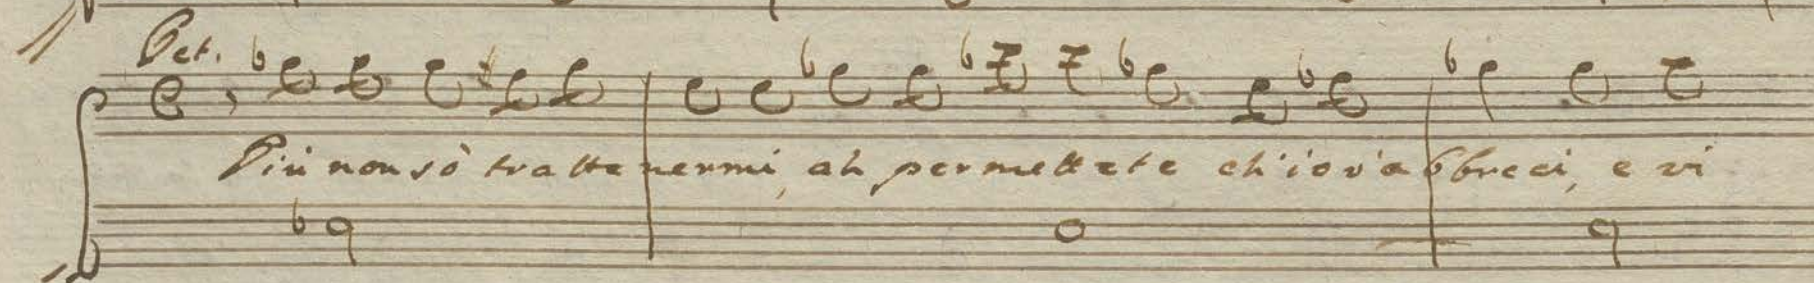 Pet.
Più non sò trattenermi, ah permettete ch'io v'abbracci, e vi